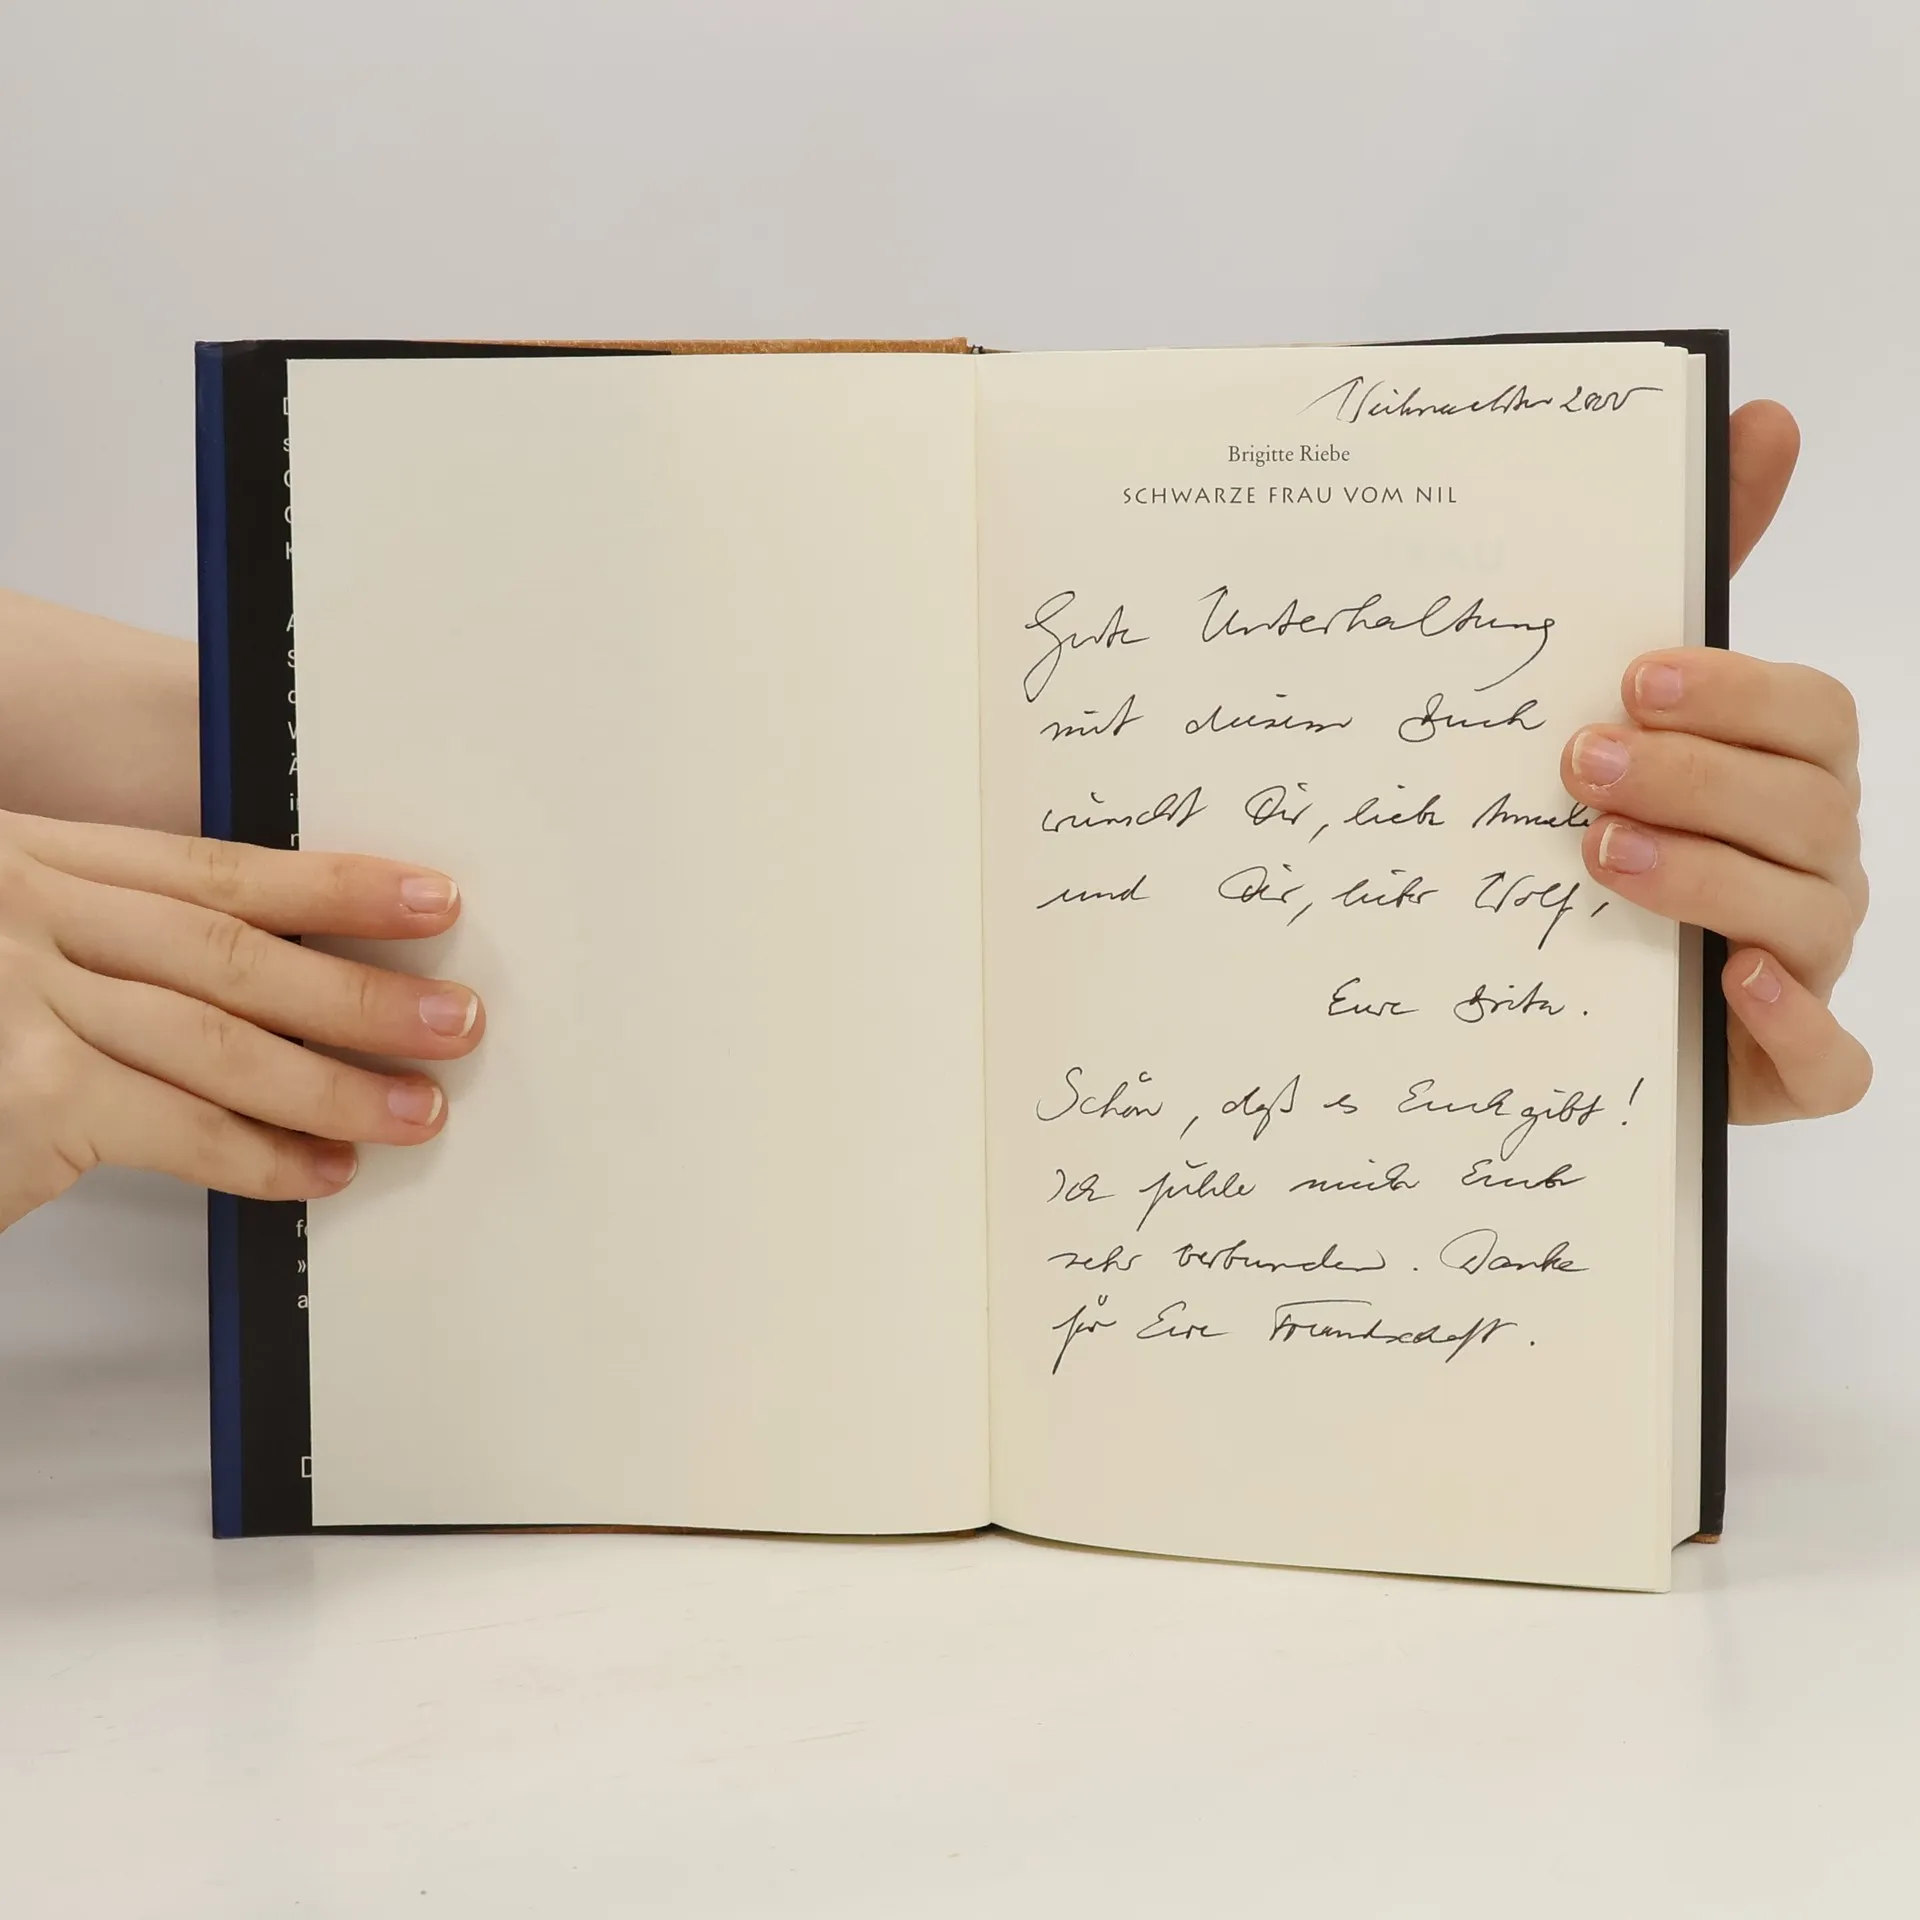 Weihnachten 2000
Brigitte Riebe
SCHWARZE FRAU VOM NIL
Gute Unterhaltung
mit diesem Buch
wünscht Dir, liebe
und Dir, lieber Wolf,
Eure Brita.
Schön, daß es Euch gibt!
Ich fühle mich Euch
sehr verbunden. Danke
für Eure Freundschaft.